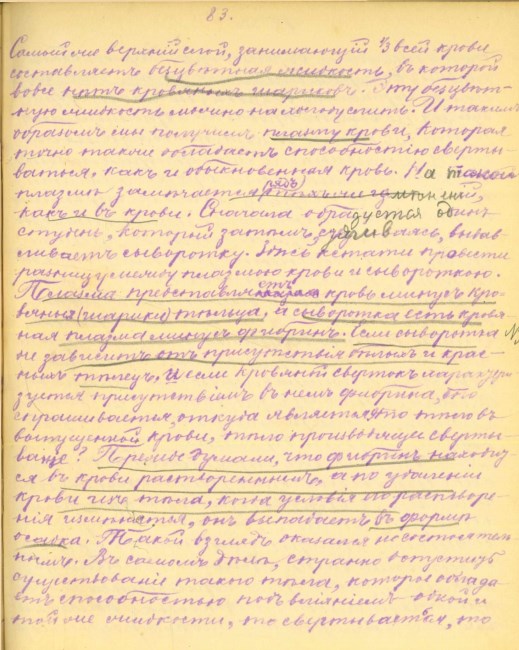 83.
Самый же верхній слой, занимающій 1/3 всей крови
составляетъ безцвѣтная жидкость, въ которой
вовсе нѣтъ кровяныхъ шариковъ. Эту безцвѣт-
ную жидкость можно на легко слить. И такимъ
образомъ мы получимъ плазму крови, которая
точно также обладаетъ способностію сверты-
ваться, какъ и обыкновенная кровь. На такой
плазмѣ замѣчается рядъ тѣхъ же измѣненій,
какъ и въ крови. Сначала образуется одинъ
студень, который затѣмъ, сживаясь, выдав-
ливаетъ сыворотку. Здѣсь кстати провести
разницу между плазмою крови и сывороткою.
Плазма представляетъ кровь минусъ кро-
вяныя (шарики) тѣльца, а сыворотка есть кровя-
ная плазма минусъ фибринъ. Если сыворотка
не зависитъ отъ присутствія бѣлыхъ и крас-
ныхъ тѣлецъ, и если кровяной свертокъ характери-
зуется присутствіемъ въ немъ фибрина, то
спрашивается, откуда является это тѣло въ
выпущенной крови, тѣло производящее сверты-
ваніе? Прежде думали, что фибринъ находит-
ся въ крови раствореннымъ, а по удаленіи
крови изъ тѣла, когда условія по растворе-
нія измѣняются, онъ выпадаетъ въ формѣ
осадка. Такой взглядъ оказался несостоятель-
нымъ. Въ самомъ дѣлѣ, странно допустить
существованіе такого тѣла, которое облада-
етъ способностью подъ вліяніемъ одной и
той же жидкости, то свертывается, то